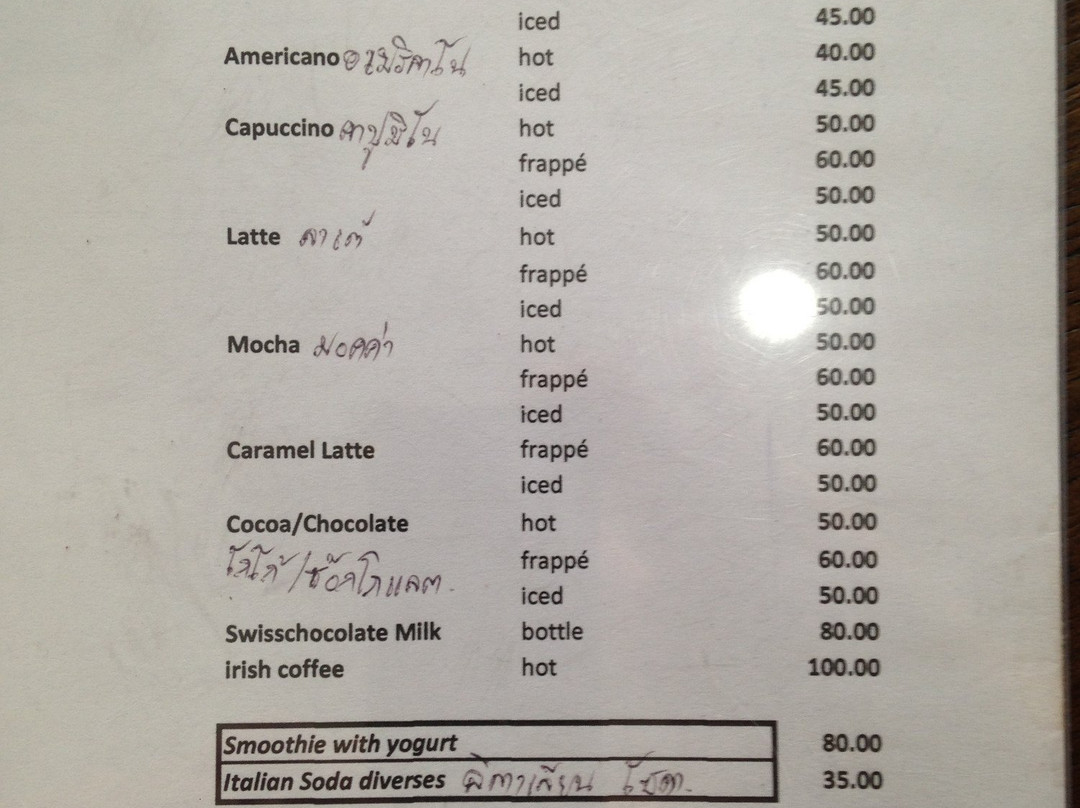 iced 45.00
Americano อเมริกาโน hot 40.00
iced 45.00
Capuccino คาปูชิโน hot 50.00
frappé 60.00
iced 50.00
Latte ลาเต้ hot 50.00
frappé 60.00
iced 50.00
Mocha มอคค่า hot 50.00
frappé 60.00
iced 50.00
Caramel Latte frappé 60.00
iced 50.00
Cocoa/Chocolate hot 50.00
โกโก้/ช๊อกโกแลต frappé 60.00
iced 50.00
Swisschocolate Milk bottle 80.00
irish coffee hot 100.00
Smoothie with yogurt 80.00
Italian Soda diverses โซดา 35.00